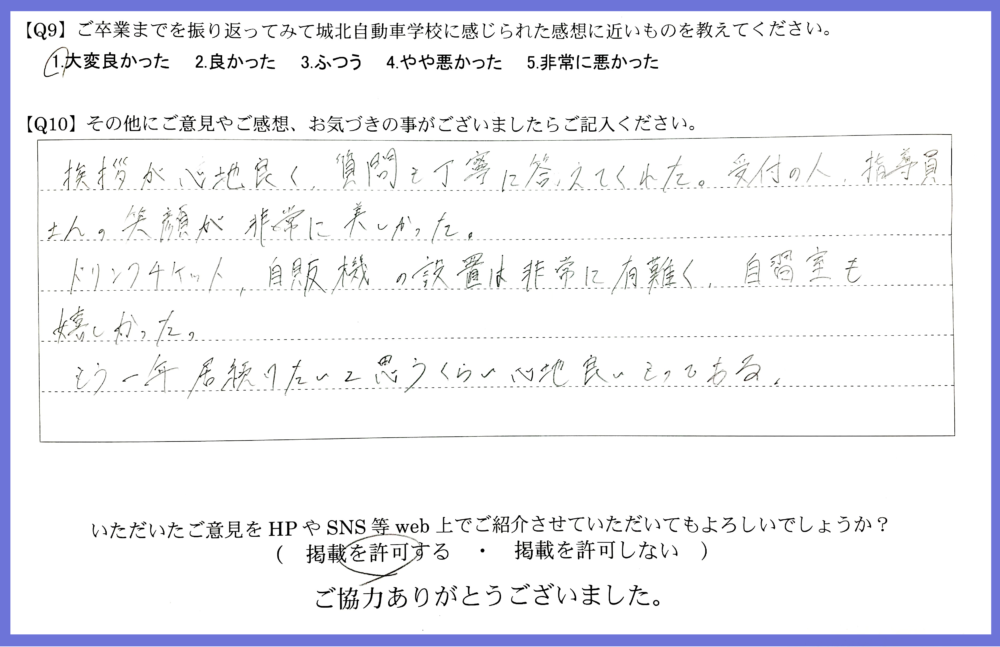 【Q9】ご卒業までを振り返ってみて城北自動車学校に感じられた感想に近いものを教えてください。
1.大変良かった 2.良かった 3.ふつう 4.やや悪かった 5.非常に悪かった
【Q10】その他にご意見やご感想、お気づきの事がございましたらご記入ください。
挨拶が心地良く、質問も丁寧に答えてくれた。受付の人、指導員
さんの笑顔が非常に美しかった。
ドリンクチケット、自販機の設置は非常に有難く、自習室も
嬉しかった。
もう一年居続けたいと思うくらい心地良いものである。
いただいたご意見をHPやSNS等web上でご紹介させていただいてもよろしいでしょうか?
( 掲載を許可する ・ 掲載を許可しない )
ご協力ありがとうございました。